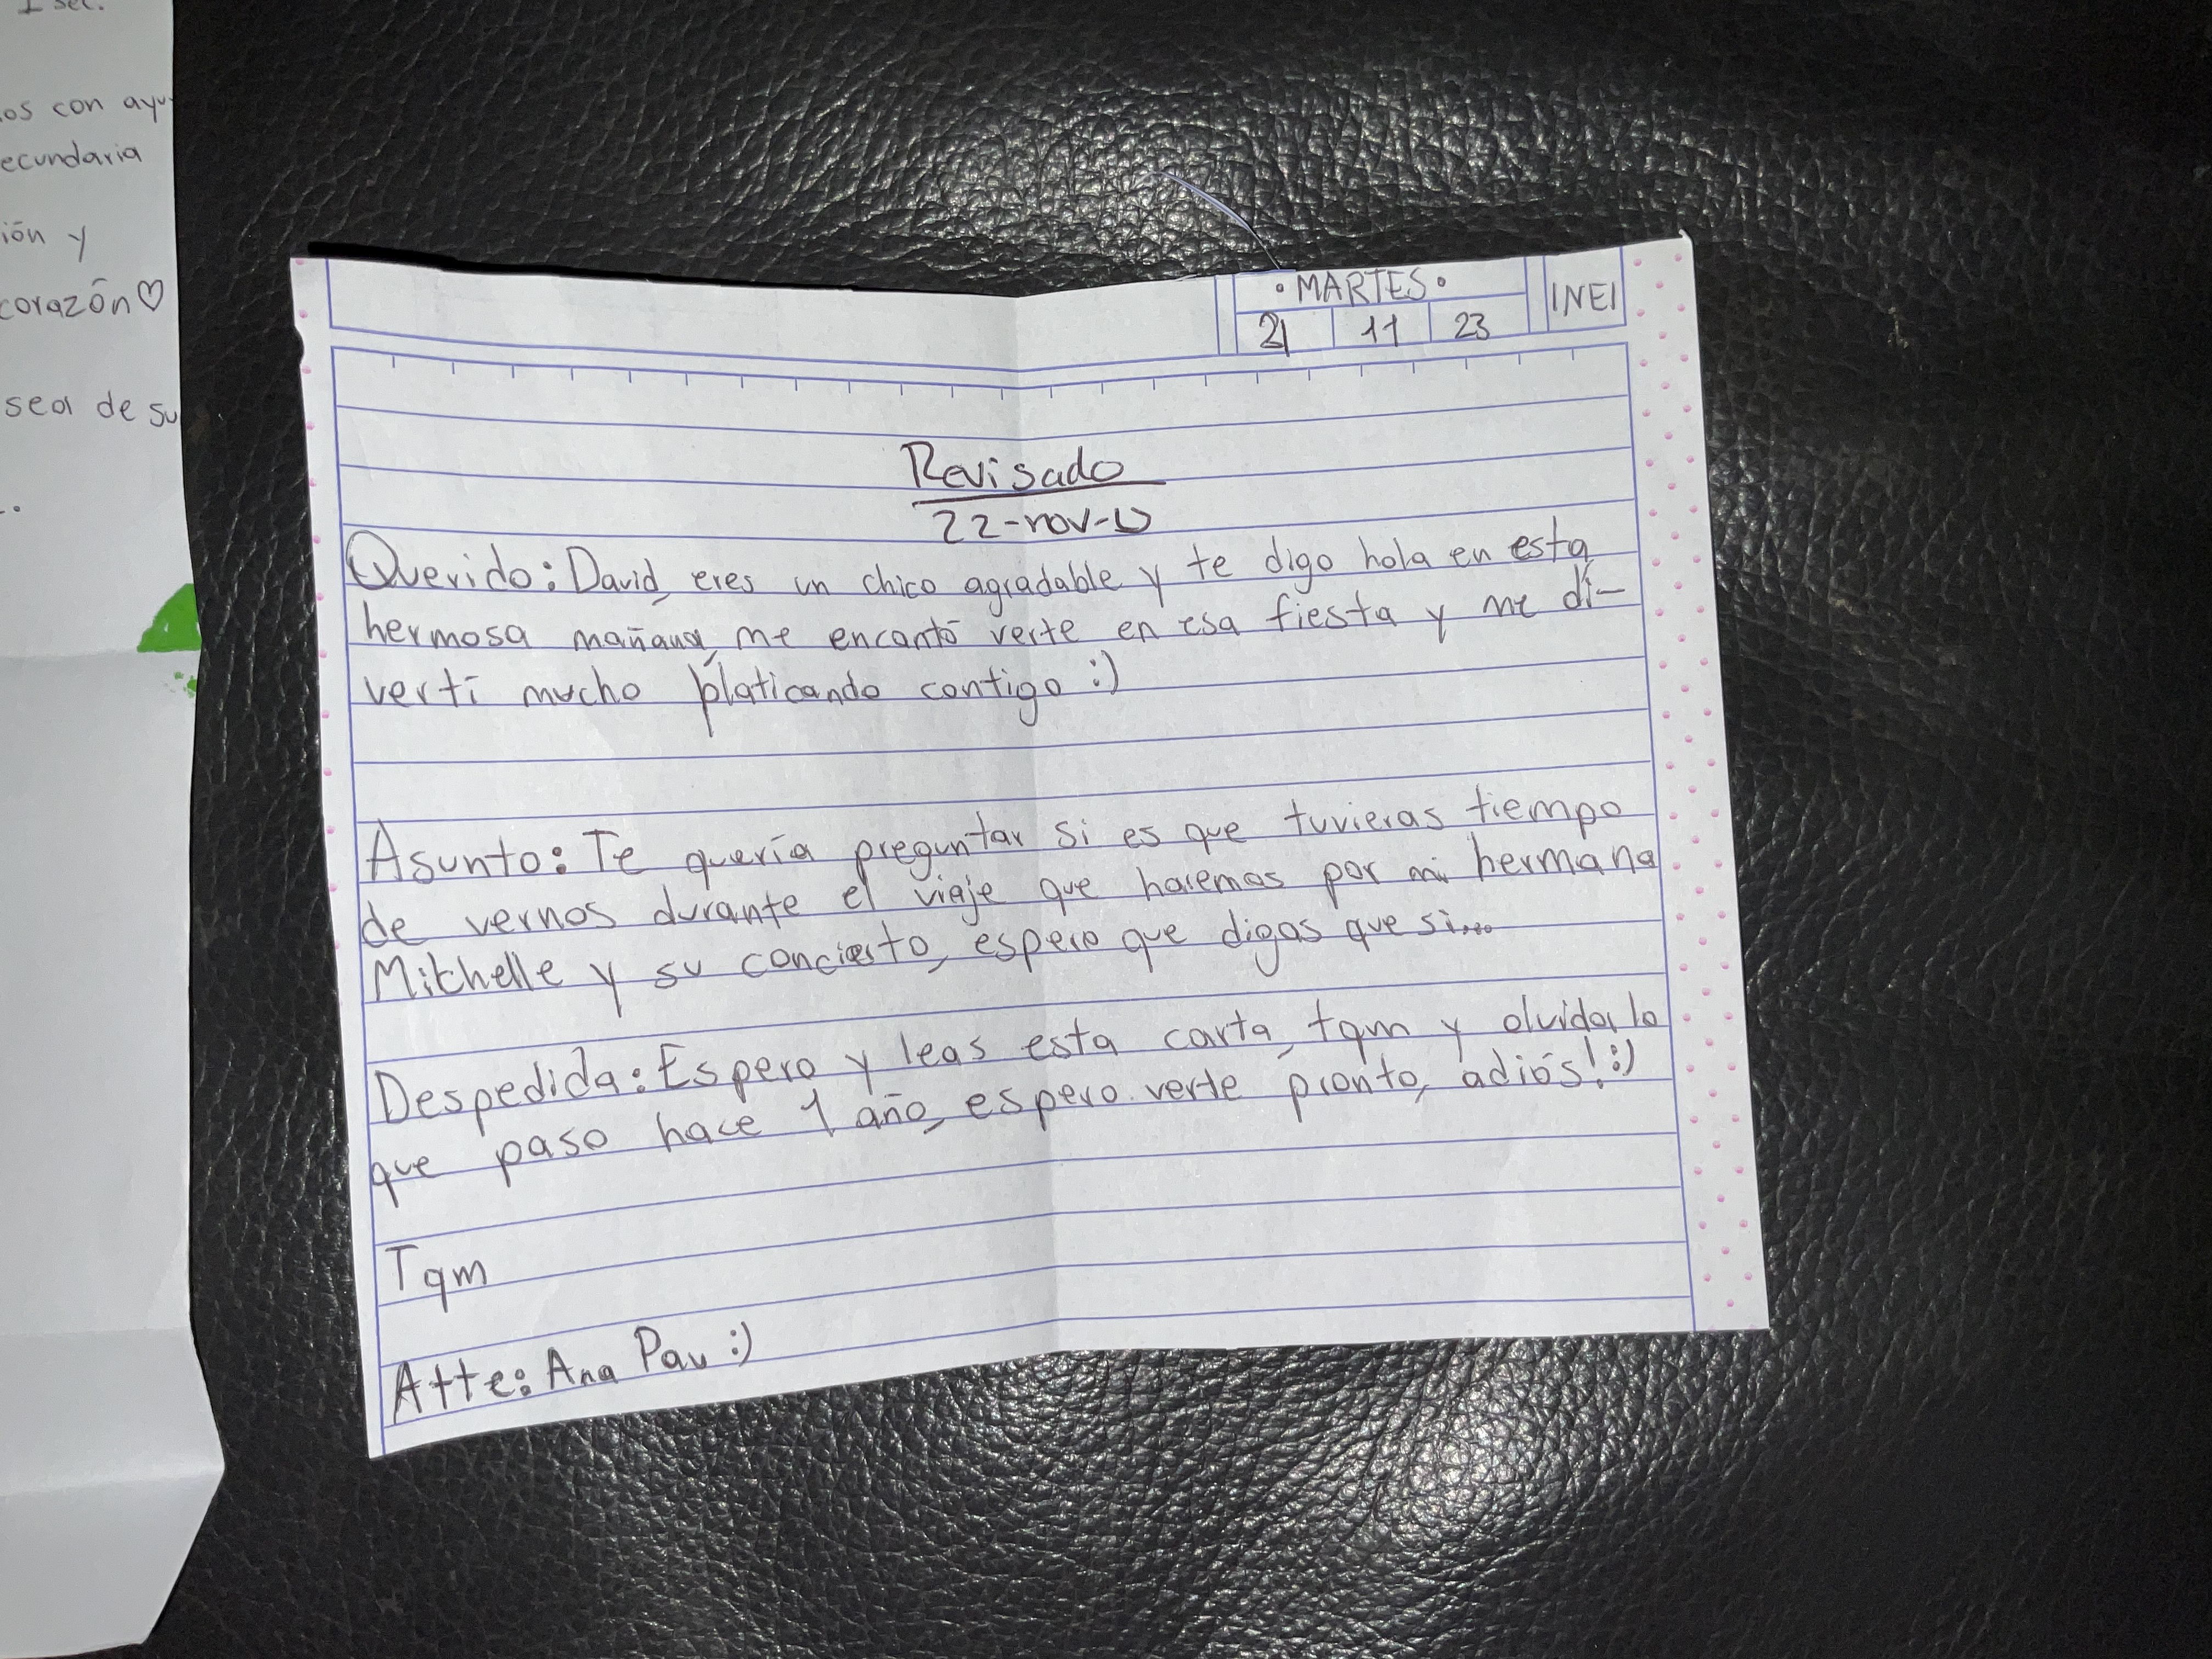 1 sec.
os con ayu
ecundaria
ión y
corazón♡
sea de su
• MARTES •
21 11 23
INEI
Revisado
22-nov-
Querido: David, eres un chico agradable y te digo hola en esta
hermosa mañana, me encantó verte en esa fiesta y me di-
vertí mucho platicando contigo :)
Asunto: Te quería preguntar si es que tuvieras tiempo
de vernos durante el viaje que haremos por mi hermana
Mitchelle y su concierto, espero que digas que si....
Despedida: Espero y leas esta carta, tqm y olvida lo
que paso hace 1 año, espero verte pronto, adiós! :)
Tqm
Atte: Ana Pau :)